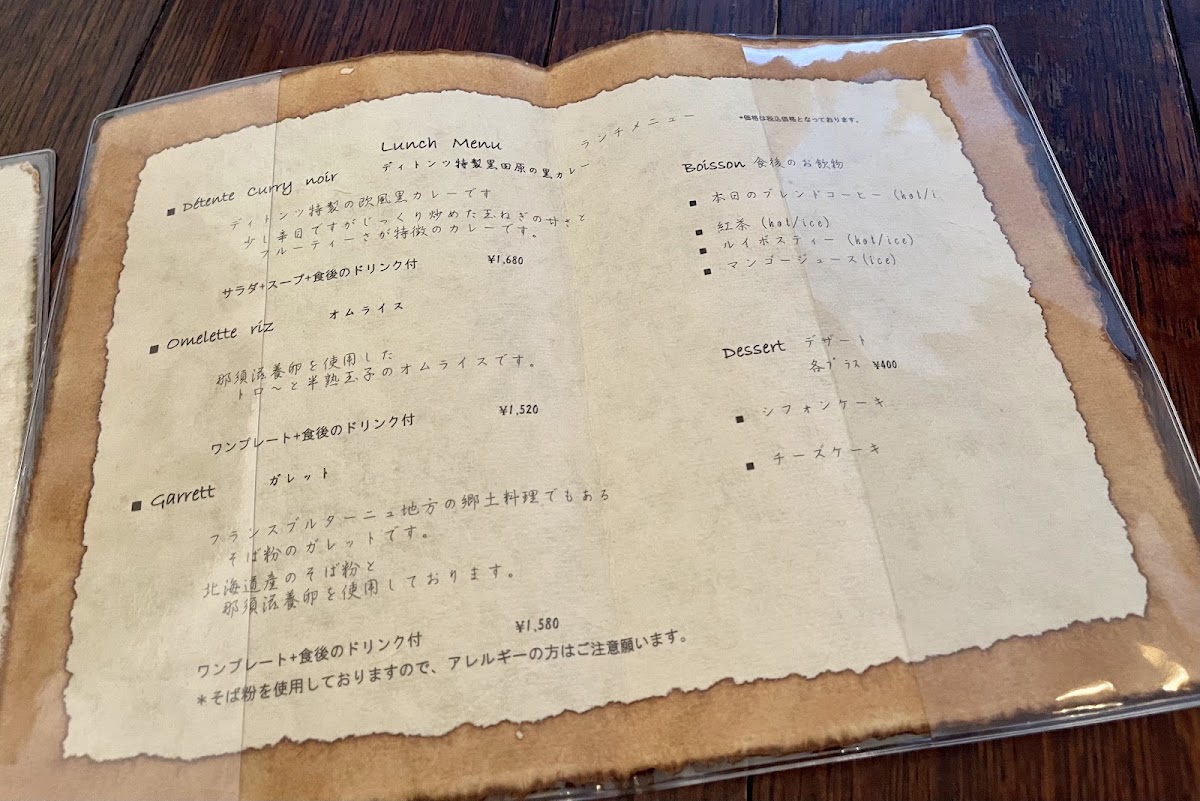 Lunch Menu ランチメニュー
*価格は税込価格となっております。
■ Détente Curry noir ディトンツ特製黒田原の黒カレー
ディトンツ特製の欧風黒カレーです
少し辛目ですがじっくり炒めた玉ねぎの甘さと
フルーティーさが特徴のカレーです。
¥1,680
サラダ+スープ+食後のドリンク付
■ Omelette riz オムライス
那須滋養卵を使用した
トロ〜と半熟玉子のオムライスです。
¥1,520
ワンプレート+食後のドリンク付
■ Garrett ガレット
フランスブルターニュ地方の郷土料理でもある
そば粉のガレットです。
北海道産のそば粉と
那須滋養卵を使用しております。
¥1,580
ワンプレート+食後のドリンク付
*そば粉を使用しておりますので、アレルギーの方はご注意願います。
Boisson 食後のお飲物
■ 本日のブレンドコーヒー (hot/i
■ 紅茶 (hot/ice)
■ ルイボスティー (hot/ice)
■ マンゴージュース(ice)
Dessert デザート
各プラス ¥400
■ シフォンケーキ
■ チーズケーキ